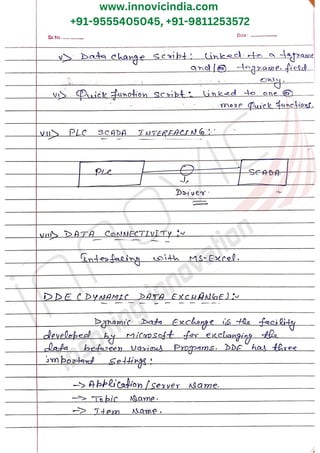 www.innovicindia.com
+91-9555405045, +91-9811253572
Sr.No.
Date:
v> Data change Script: Linked to a tagname
and/or tagname.field
only.
vi> Quick Function Script: Linked to one or
more Quick Functions.
VII> PLC SCADA INTERFACING:-
PLC
SCADA
Driver
VIII> DATA CONNECTIVITY:-
Interfacing with MS-Excel.
DDE (DYNAMIC DATA EXCHANGE):-
Dynamic Data Exchange is the facility
developed by Microsoft for exchanging the
data between various Programs. DDE has three
important settings:
-> Application/server Name.
-> Topic Name.
-> Item Name.